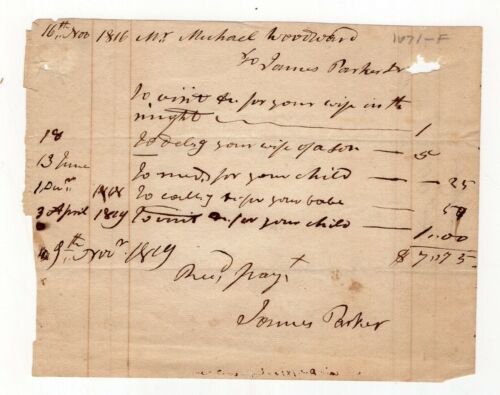 16th Nov 1816 Mr Michael Woodward 1071-F
To James Parker Dr
To visit &c for your wife in the
night 1
18 To delvg your wife of a son 5
13 June To medn for your child 25
1818 To callg &c for your babe 50
30 April 1819 To visit &c for your child 1.00
9th Novr 1819 $ 7.75
Recd payt
James Parker